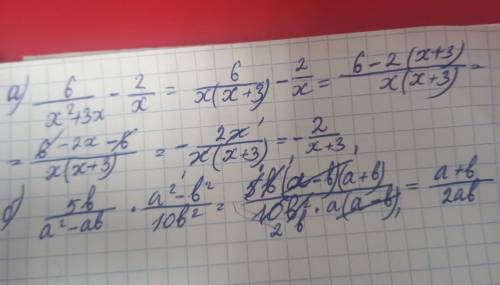 а) 6/(x²+3x) − 2/x = 6/(x(x+3)) − 2/x = (6−2(x+3))/(x(x+3)) =
= (6−2x−6)/(x(x+3)) = − 2x/(x(x+3)) = − 2/(x+3)
б) 5b/(a²−ab) · (a²−b²)/(10b²) = (5b(a−b)(a+b))/(10b² · a(a−b)) = (a+b)/(2ab)